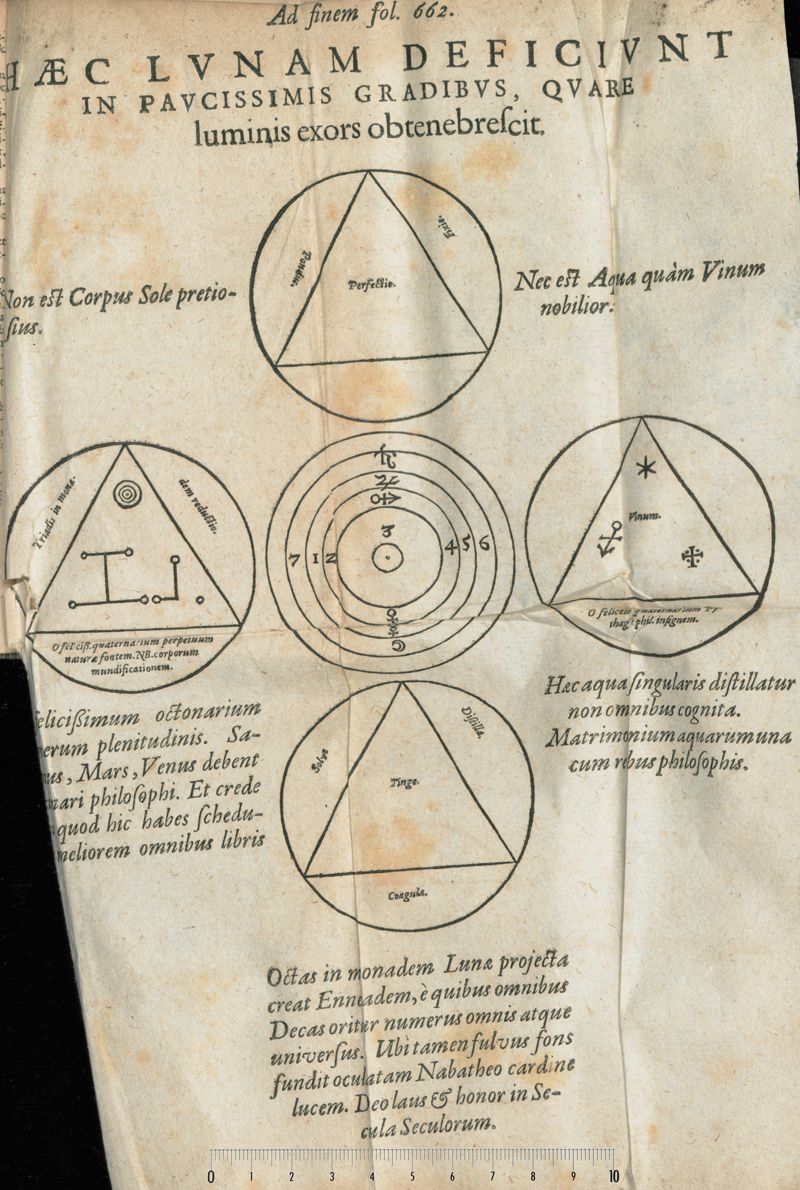 Ad finem fol. 662.
HÆC LVNAM DEFICIVNT
IN PAVCISSIMIS GRADIBVS, QVARE
luminis exors obtenebreſcit.
Pondus.
Fixio.
Perfectio.
Non est Corpus Sole pretio-
ſius.
Nec est Aqua quàm Vinum
nobilior.
Triadis in mona-
dem reductio.
O feliciſſ. quaternarium perpetuum
naturæ fontem. NB. corporum
mundificationem.
♄
♃
♂
3
7 1 2 4 5 6
☿
☾
Vinum.
O felicem quaternarium Py-
thag: phil. inſignem.
feliciſſimum octonarium
erum plenitudinis. Sa-
us, Mars, Venus debent
nari philoſophi. Et crede
quod hic habes ſchedu-
meliorem omnibus libris
Hæc aqua ſingularis diſtillatur
non omnibus cognita.
Matrimonium aquarum una
cum rebus philoſophis.
Solve
Diſtilla.
Tinge.
Coagula.
Octas in monadem Lunæ projecta
creat Enneadem, è quibus omnibus
Decas oritur numerus omnis atque
univerſus. Ubi tamen fulvus fons
fundit oculatam Nabatheo cardine
lucem. Deo laus & honor in Se-
cula Seculorum.
0 1 2 3 4 5 6 7 8 9 10